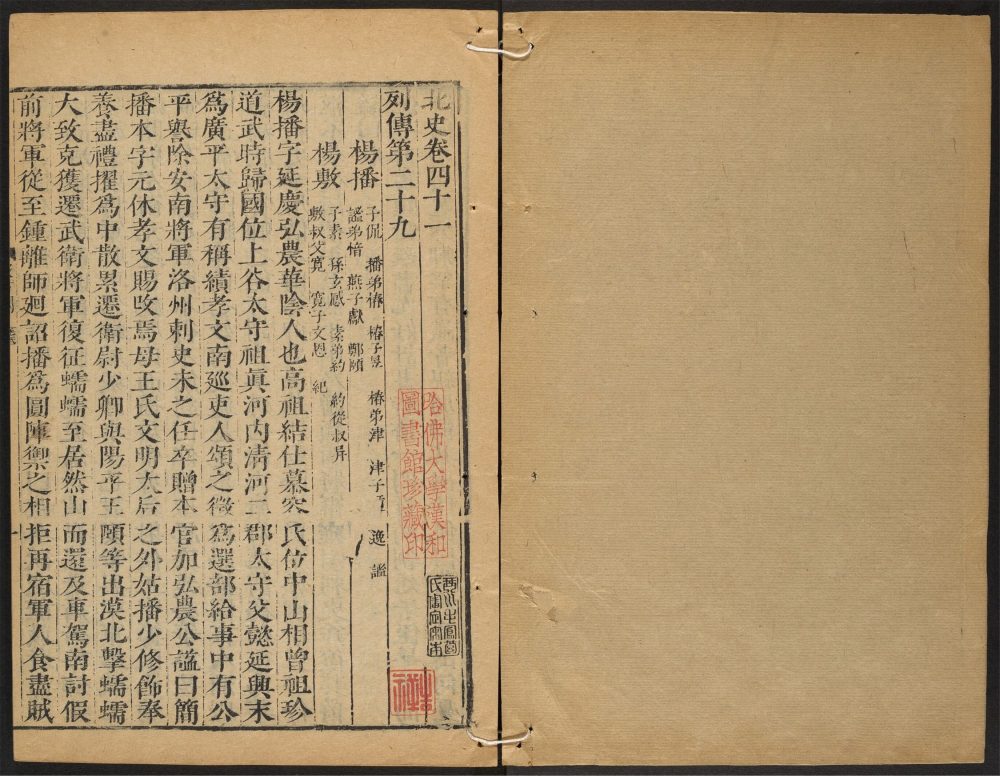 北史卷四十一
列傳第二十九
楊播 子侃 播弟椿 椿子昱 椿弟津 津子 逸 謐
謐弟愔 燕子獻 鄭頤
楊敷 子素 孫玄感 素弟約 約從叔异
敷叔父寬 寬子文恩 紀
楊播字延慶弘農華陰人也高祖結仕慕容氏位中山相曾祖珍
道武時歸國位上谷太守祖眞河內清河二郡太守父懿延興末
爲廣平太守有稱績孝文南巡吏人頌之徵爲選部給事中有公
平譽除安南將軍洛州刺史未之任卒贈本官加弘農公謚曰簡
播本字元休孝文賜改焉母王氏文明太后之外姑播少修飭奉
養盡禮擢爲中散累遷衛尉少卿與陽平王頤等出漠北擊蠕蠕
大致克獲遷武衛將軍復征蠕蠕至居然山而還及車駕南討假
前將軍從至鍾離師廻詔播爲圓陣禦之相拒再宿軍人食盡賊
哈佛大學漢和
圖書館珍藏印